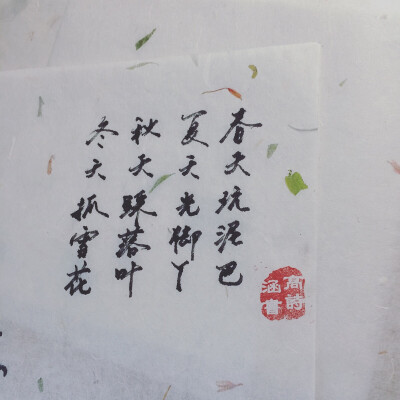 春天玩泥巴
夏天光脚丫
秋天踩落叶
冬天抓雪花
高詩涵書